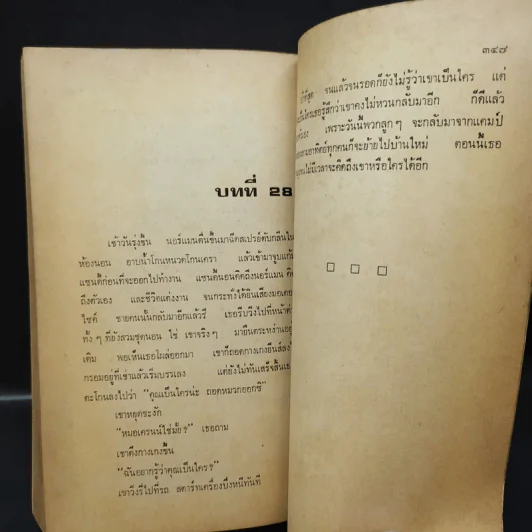 บทที่ 28
เช้าวันรุ่งขึ้น นอร์แมนตื่นขึ้นมาฉีดสเปรย์ดับกลิ่นใน
ห้องนอน อาบน้ำโกนหนวดโกนเครา แล้วเข้ามาจูบแก้ม
แซนดี้ก่อนที่จะออกไปทำงาน แซนดี้นอนคิดถึงนอร์แมน คิด
ถึงตัวเอง และชีวิตแต่งงาน จนกระทั่งได้ยินเสียงมอเตอ
ไซค์ ชายคนนั้นกลับมาอีกแล้วรึ เธอรีบวิ่งไปที่หน้าต่
ทั้ง ๆ ที่ยังสวมชุดนอน ใช่ เขาจริงๆ มายืนตระหง่านอยู่
เดิม พอเห็นเธอโผล่ออกมา เขาก็ถอดกางเกงยีนส์ลง
กรอมอยู่ที่เข่าแล้วเริ่มบรรเลง แต่ยังไม่ทันเสร็จสิ้นเธ
ตะโกนลงไปว่า "คุณเป็นใครน่ะ ถอดหมวกออกซิ"
เขาหยุดชะงัก
"หมอเครนน์ใช่มั้ย?" เธอถาม
เขาดึงกางเกงขึ้น
"ฉันอยากรู้ว่าคุณเป็นใคร?"
เขาวิ่งรี่ไปที่รถ สตาร์ทเครื่องบึ่งหนีทันที
๓๔๗
ที่สุด จนแล้วจนรอดก็ยังไม่รู้ว่าเขาเป็นใคร แต่
เป็นใครเธอรู้สึกว่าเขาคงไม่หวนกลับมาอีก ก็ดีแล้ว
เพราะวันนี้พวกลูกๆ จะกลับมาจากแคมป์
อาทิตย์ทุกคนก็จะย้ายไปบ้านใหม่ ตอนนี้เธอ
ไม่มีเวลาจะคิดถึงเขาหรือใครได้อีก